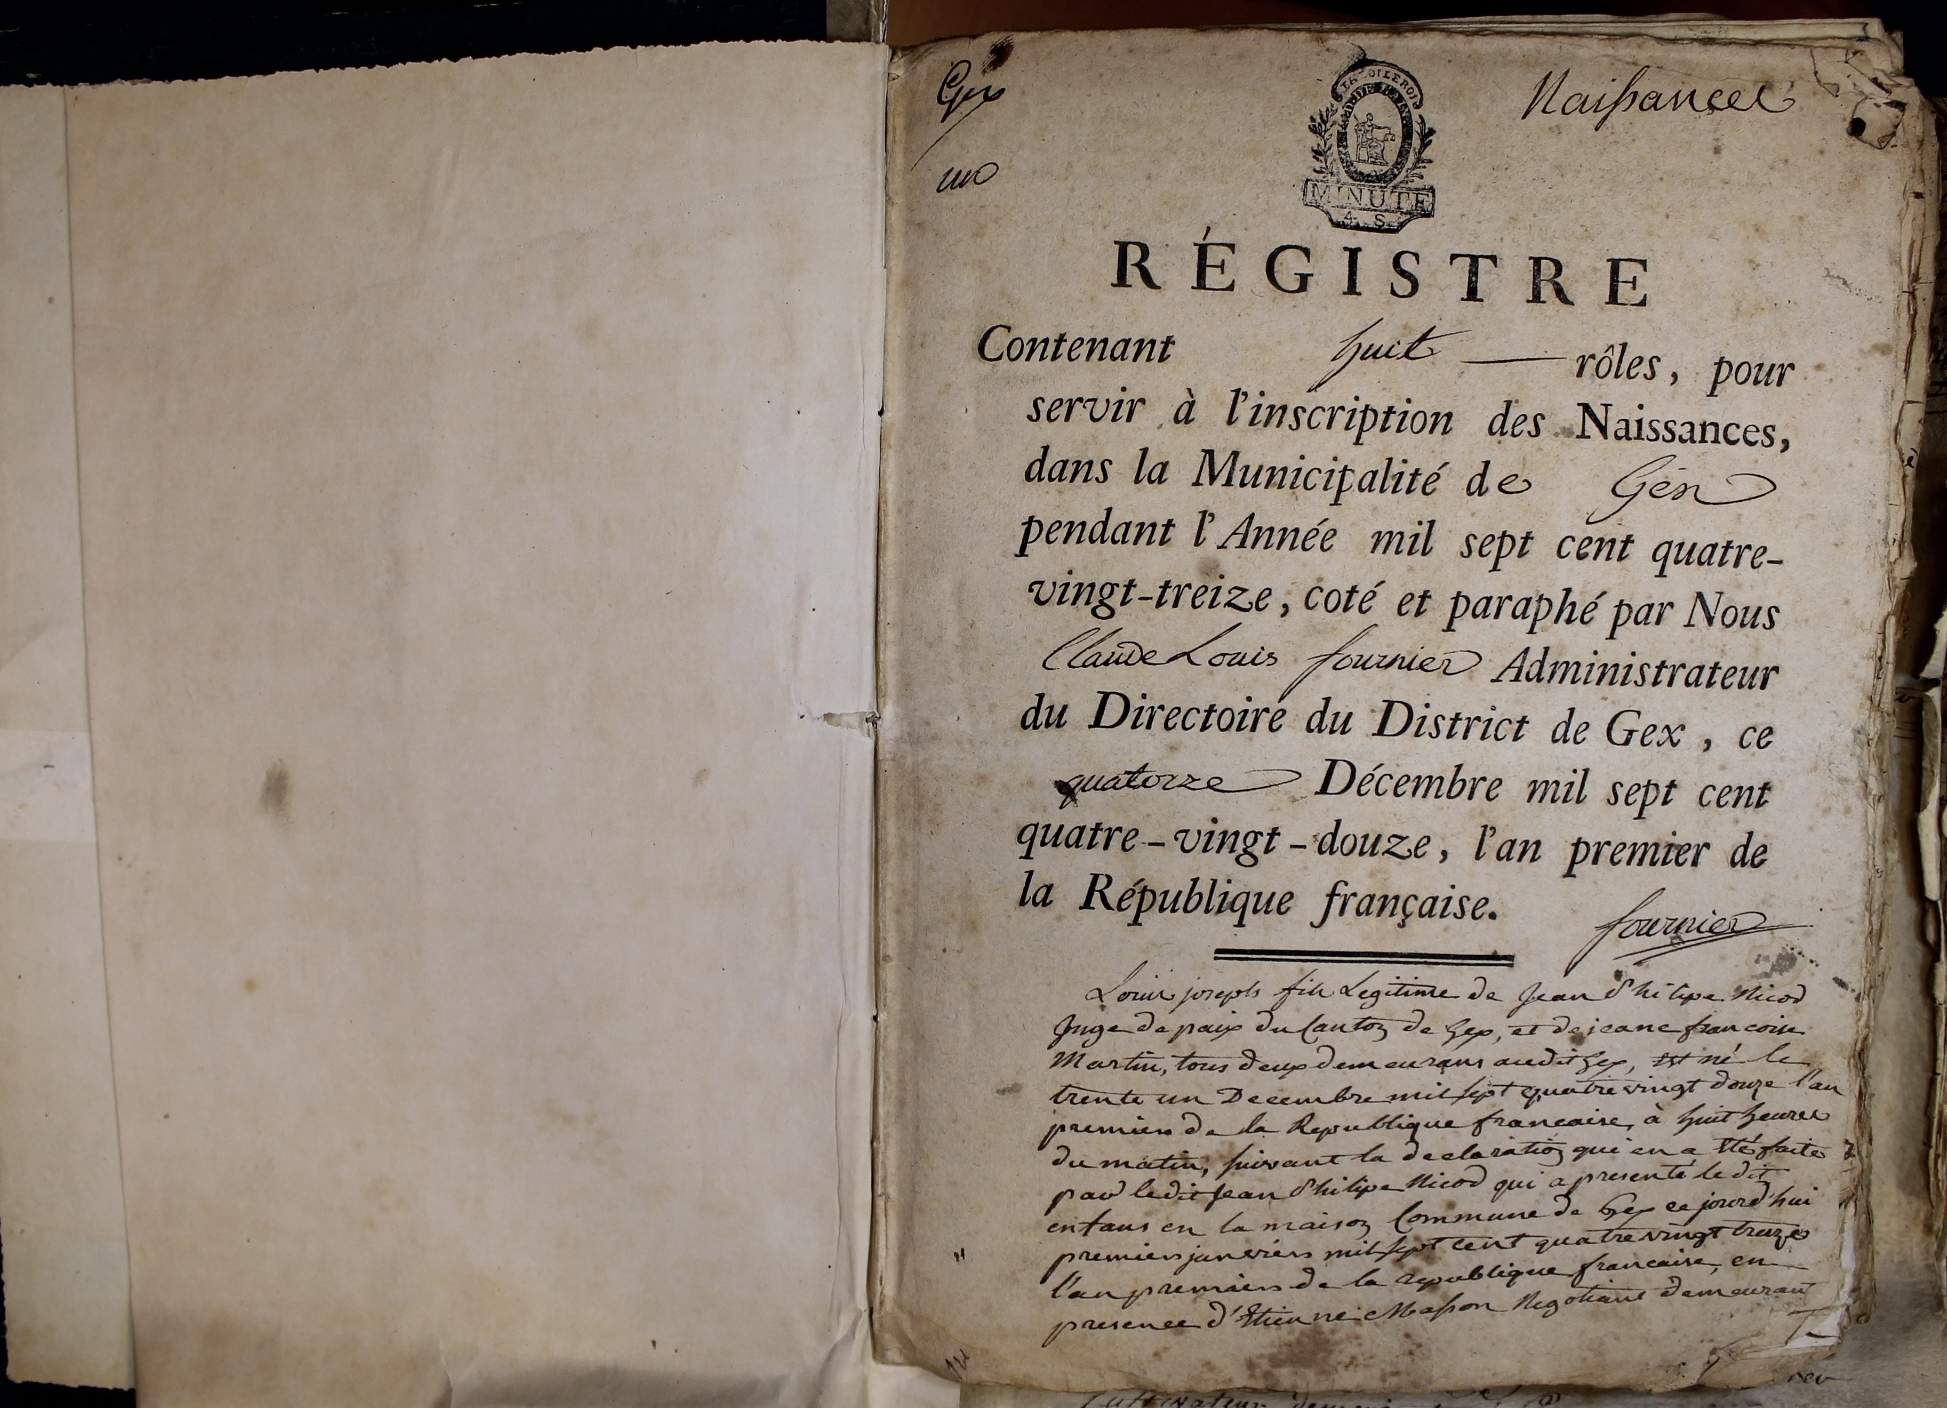 Gex
un
LA LOI LE ROI
MINUTE
4. S.
Naissances
RÉGISTRE
Contenant huit rôles, pour
servir à l'inscription des Naissances,
dans la Municipalité de Gex
pendant l'Année mil sept cent quatre-
vingt-treize, coté et paraphé par Nous
Claude Louis fournier Administrateur
du Directoire du District de Gex, ce
quatorze Décembre mil sept cent
quatre-vingt-douze, l'an premier de
la République française.
fournier
Louis joseph fils Legitime de Jean Philipe Nicod
Juge de paix du Canton de Gex, et de jeane francoise
Martin, tous deux demeurans audit Gex, est né le
trente un Decembre mil sept quatre vingt douze l'an
premier de la Republique francaise, à huit heures
du matin, suivant la declaration qui en a été faite
par ledit Jean Philipe Nicod qui a presenté le dit
enfans en la maison Commune de Gex ce jourd'hui
premier janvier mil sept cent quatre vingt treize
l'an premier de la republique francaise, en
presence d'Etienne Masson Negotiant demeurant